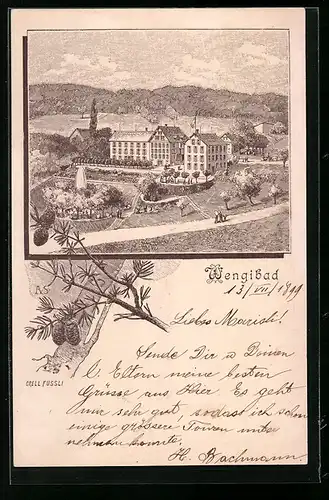 Wengibad
13/VII/1899
AS
Liebes Mariesli!
Sende Dir u Deinen
l. Eltern meine besten
Grüsse aus Hier Es geht
mir sehr gut, sodass ich schon
einige grössere Touren unter
nehmen konnte.
H. Bachmann.
ORELL FÜSSLI